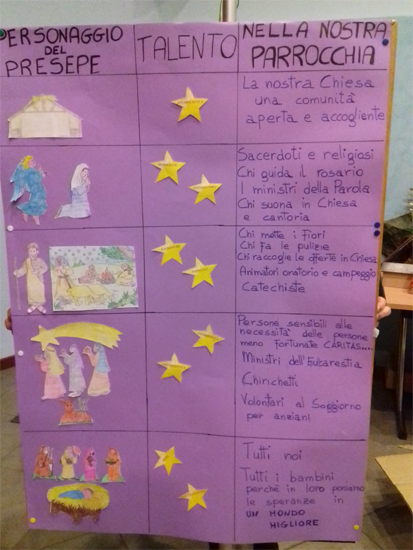 PERSONAGGIO
DEL
PRESEPE
TALENTO
NELLA NOSTRA
PARROCCHIA
La nostra Chiesa
una comunità
aperta e accogliente
Sacerdoti e religiosi
Chi guida il rosario
I ministri della Parola
Chi suona in Chiesa
e cantoria
Chi mette i fiori
Chi fa le pulizie
Chi raccoglie le offerte in Chiesa
Animatori oratorio e campeggio
Catechiste
Persone sensibili alle
necessità delle persone
meno fortunate CARITAS....
Ministri dell'Eucarestia
Chirichetti
Volontari al Soggiorno
per anziani
Tutti noi
Tutti i bambini
perché in loro poniamo
le speranze in
UN MONDO
MIGLIORE